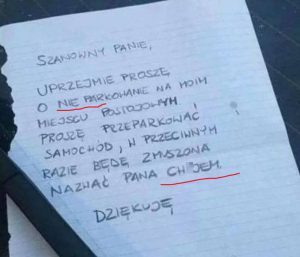 SZANOWNY PANIE,
UPRZEJMIE PROSZĘ
O NIE PARKOWANIE NA MOIM
MIEJSCU POSTOJOWYM,
PROSZĘ PRZEPARKOWAĆ
SAMOCHÓD, W PRZECIWNYM
RAZIE BĘDĘ ZMUSZONA
NAZWAĆ PANA CH JEM.
DZIĘKUJĘ